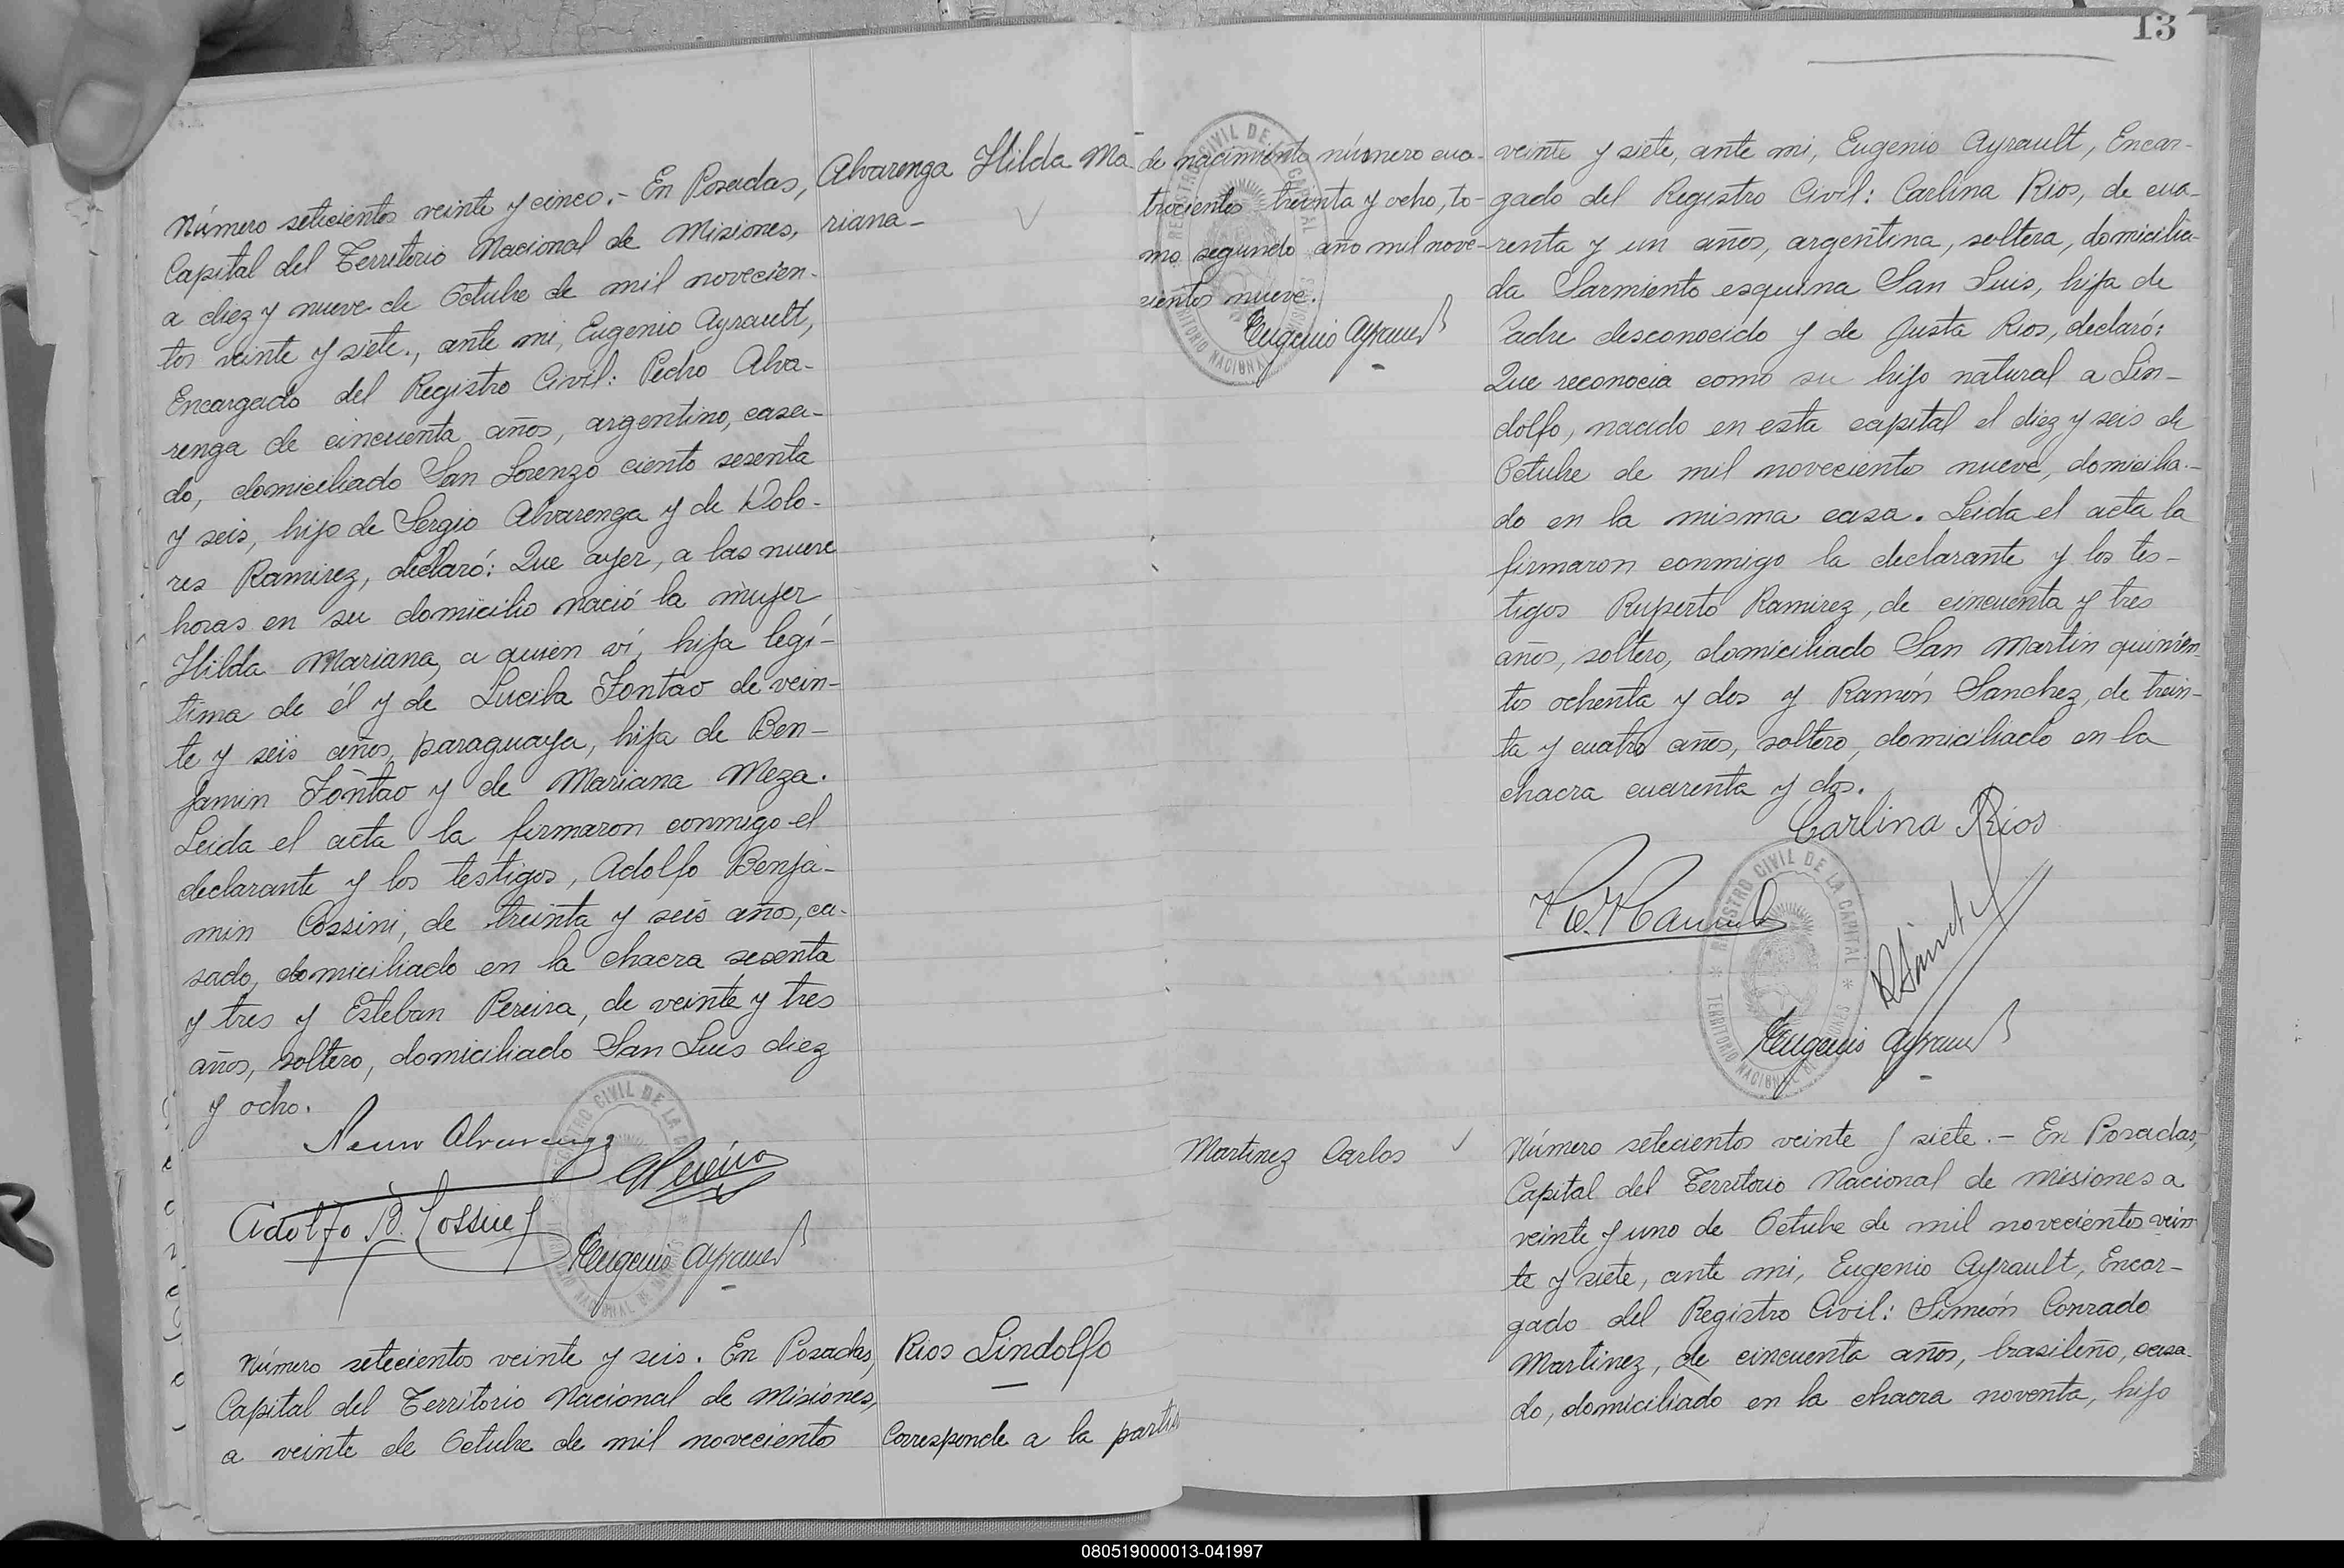 Número setecientos veinte y cinco.- En Posadas,
Capital del Territorio Nacional de Misiones,
a diez y nueve de Octubre de mil novecien-
tos veinte y siete., ante mi, Eugenio Ayrault,
Encargado del Registro Civil: Pedro Alva-
renga de cincuenta años, argentino, casa-
do, domiciliado San Lorenzo ciento sesenta
y seis, hijo de Sergio Alvarenga y de Dolo-
res Ramirez, declaró: Que ayer, a las nueve
horas en su domicilio nació la mujer
Hilda Mariana, a quien vi, hija legí-
tima de él y de Lucila Fontao de vein-
te y seis años, paraguaya, hija de Ben-
jamin Fontao y de Mariana Meza.
Leida el acta la firmaron conmigo el
declarante y los testigos, Adolfo Benja-
min Cossini, de treinta y seis años, ca-
sado, domiciliado en la chacra sesenta
y tres y Esteban Pereira, de veinte y tres
años, soltero, domiciliado San Luis diez
y ocho.
Alvarenga
EPereira
Adolfo B. Cossini
Eugenio Ayrault
REGISTRO CIVIL DE LA CAPITAL
TERRITORIO NACIONAL DE MISIONES
Alvarenga Hilda Ma
riana-
Número setecientos veinte y seis. En Posadas,
Capital del Territorio Nacional de Misiones,
a veinte de Octubre de mil novecientos
Rios Lindolfo
Corresponde a la partida
13
de nacimiento número cua-
trocientos treinta y ocho, to-
mo segundo año mil nove-
cientos nueve.
Eugenio Ayrault
REGISTRO CIVIL DE LA CAPITAL
TERRITORIO NACIONAL DE MISIONES
veinte y siete, ante mi, Eugenio Ayrault, Encar-
gado del Registro Civil: Carlina Rios, de cua-
renta y un años, argentina, soltera, domicilia-
da Sarmiento esquina San Luis, hija de
Padre desconocido y de Justa Rios, declaró:
Que reconocia como su hijo natural a Lin-
dolfo, nacido en esta capital el diez y seis de
Octubre de mil novecientos nueve, domicilia-
do en la misma casa. Leida el acta la
firmaron conmigo la declarante y los tes-
tigos Ruperto Ramirez, de cincuenta y tres
años, soltero, domiciliado San Martin quinien-
tos ochenta y dos y Ramón Sanchez, de trein-
ta y cuatro años, soltero, domiciliado en la
chacra cuarenta y dos.
Carlina Rios
Eugenio Ayrault
REGISTRO CIVIL DE LA CAPITAL
TERRITORIO NACIONAL DE MISIONES
Martinez Carlos
Número setecientos veinte y siete.- En Posadas,
Capital del Territorio Nacional de Misiones a
veinte y uno de Octubre de mil novecientos vein
te y siete, ante mi, Eugenio Ayrault, Encar-
gado del Registro Civil: Simeón Conrado
Martinez, de cincuenta años, brasileño, casa-
do, domiciliado en la chacra noventa, hijo
080519000013-041997